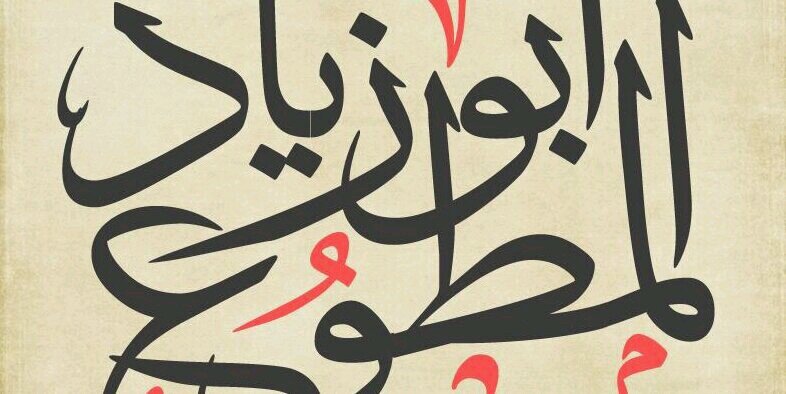 ابو زياد
المطوع